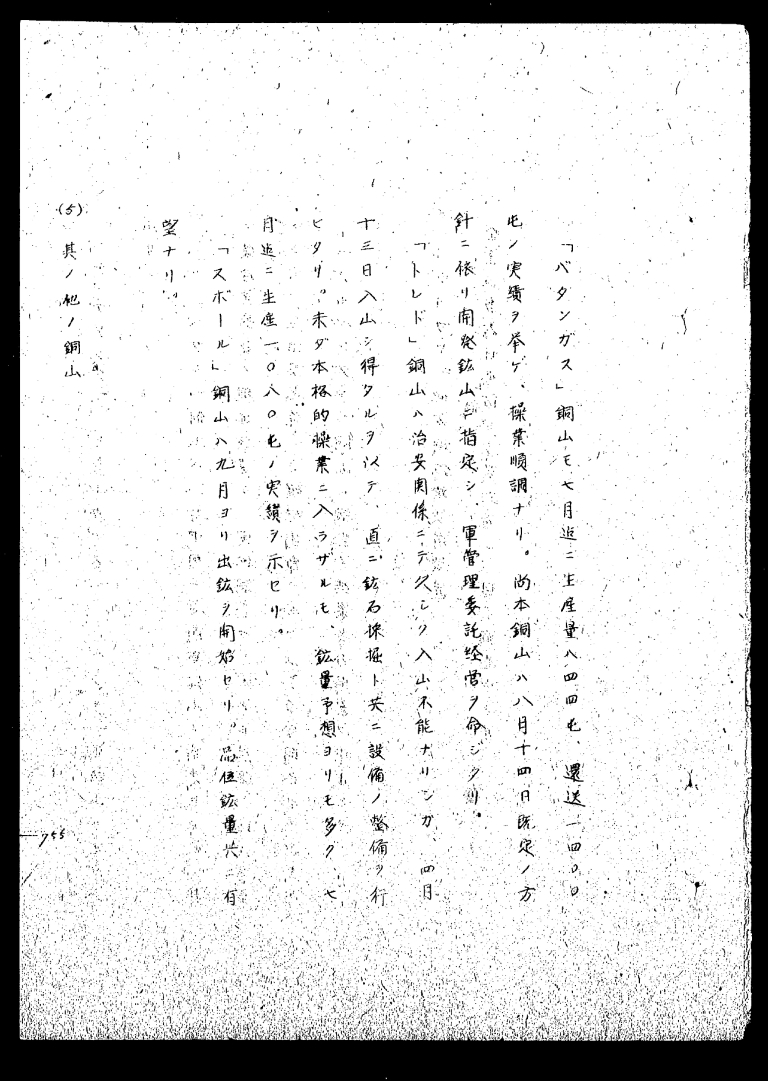 「バタンガス」銅山モ七月迄ニ生産量八四四屯、還送一四〇〇
屯ノ実績ヲ挙ゲ、操業順調ナリ。尚本銅山ハ八月十四日既定ノ方
針ニ依リ開発鉱山ニ指定シ、軍管理委託経営ヲ命ジタリ。
「トレド」銅山ハ治安関係ニテ久シク入山不能ナリシガ、四月
十三日入山シ得タルヲ以テ、直ニ鉱石採掘ト共ニ設備ノ整備ヲ行
ヒタリ。未ダ本格的操業ニ入ラザルモ、鉱量予想ヨリモ多ク、七
月迄ニ生産一〇八〇屯ノ実績ヲ示セリ。
「スボール」銅山ハ九月ヨリ出鉱ヲ開始セリ。品位鉱量共ニ有
望ナリ。
(5) 其ノ他ノ銅山
755